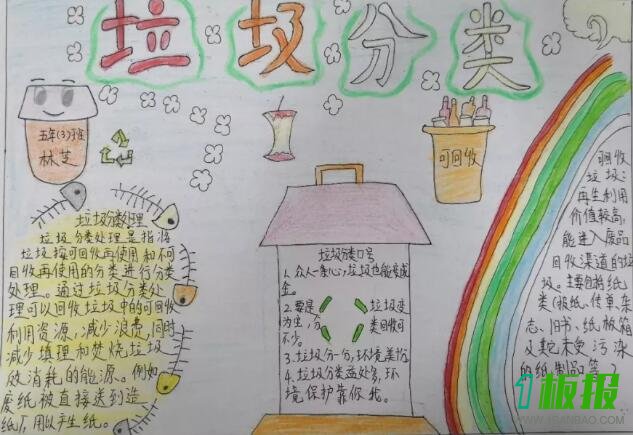 垃圾分类
五年(3)班
林芝
可回收
垃圾分类处理
垃圾分类处理是指将
垃圾按可回收再使用和不可
回收再使用的分类进行分类
处理。通过垃圾分类处
理可以回收垃圾中的可回收
利用资源,减少浪费,同时
减少填埋和焚烧垃圾
所消耗的能源。例如
废纸被直接送到造
纸厂,用以生产纸。
垃圾分类口号
1.众人一条心,垃圾也能变成
金。
2.要是 垃圾变
为生, 分类回收可
3.垃圾分一分,环境美
4.垃圾分类益处多,环
境保护靠你我。
回收
垃圾:
再生利用
价值较高,
能进入废品
回收渠道的垃
圾。主要包括纸
类(报纸、传单、杂
志、旧书、纸板箱
及其它未受污染
的纸制品等)
1板报
WWW.1BANBAO.COM